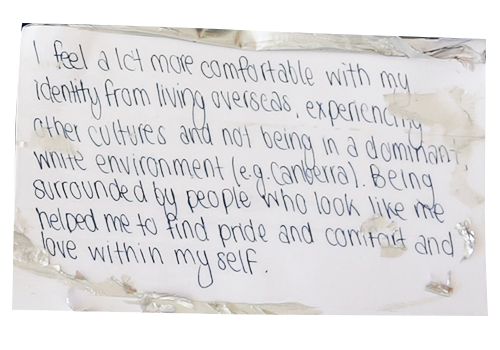 I feel a lot more comfortable with my
identity from living overseas, experiencing
other cultures and not being in a dominant,
white environment (e.g. Canberra). Being
surrounded by people who look like me
helped me to find pride and comfort and
love within my self.